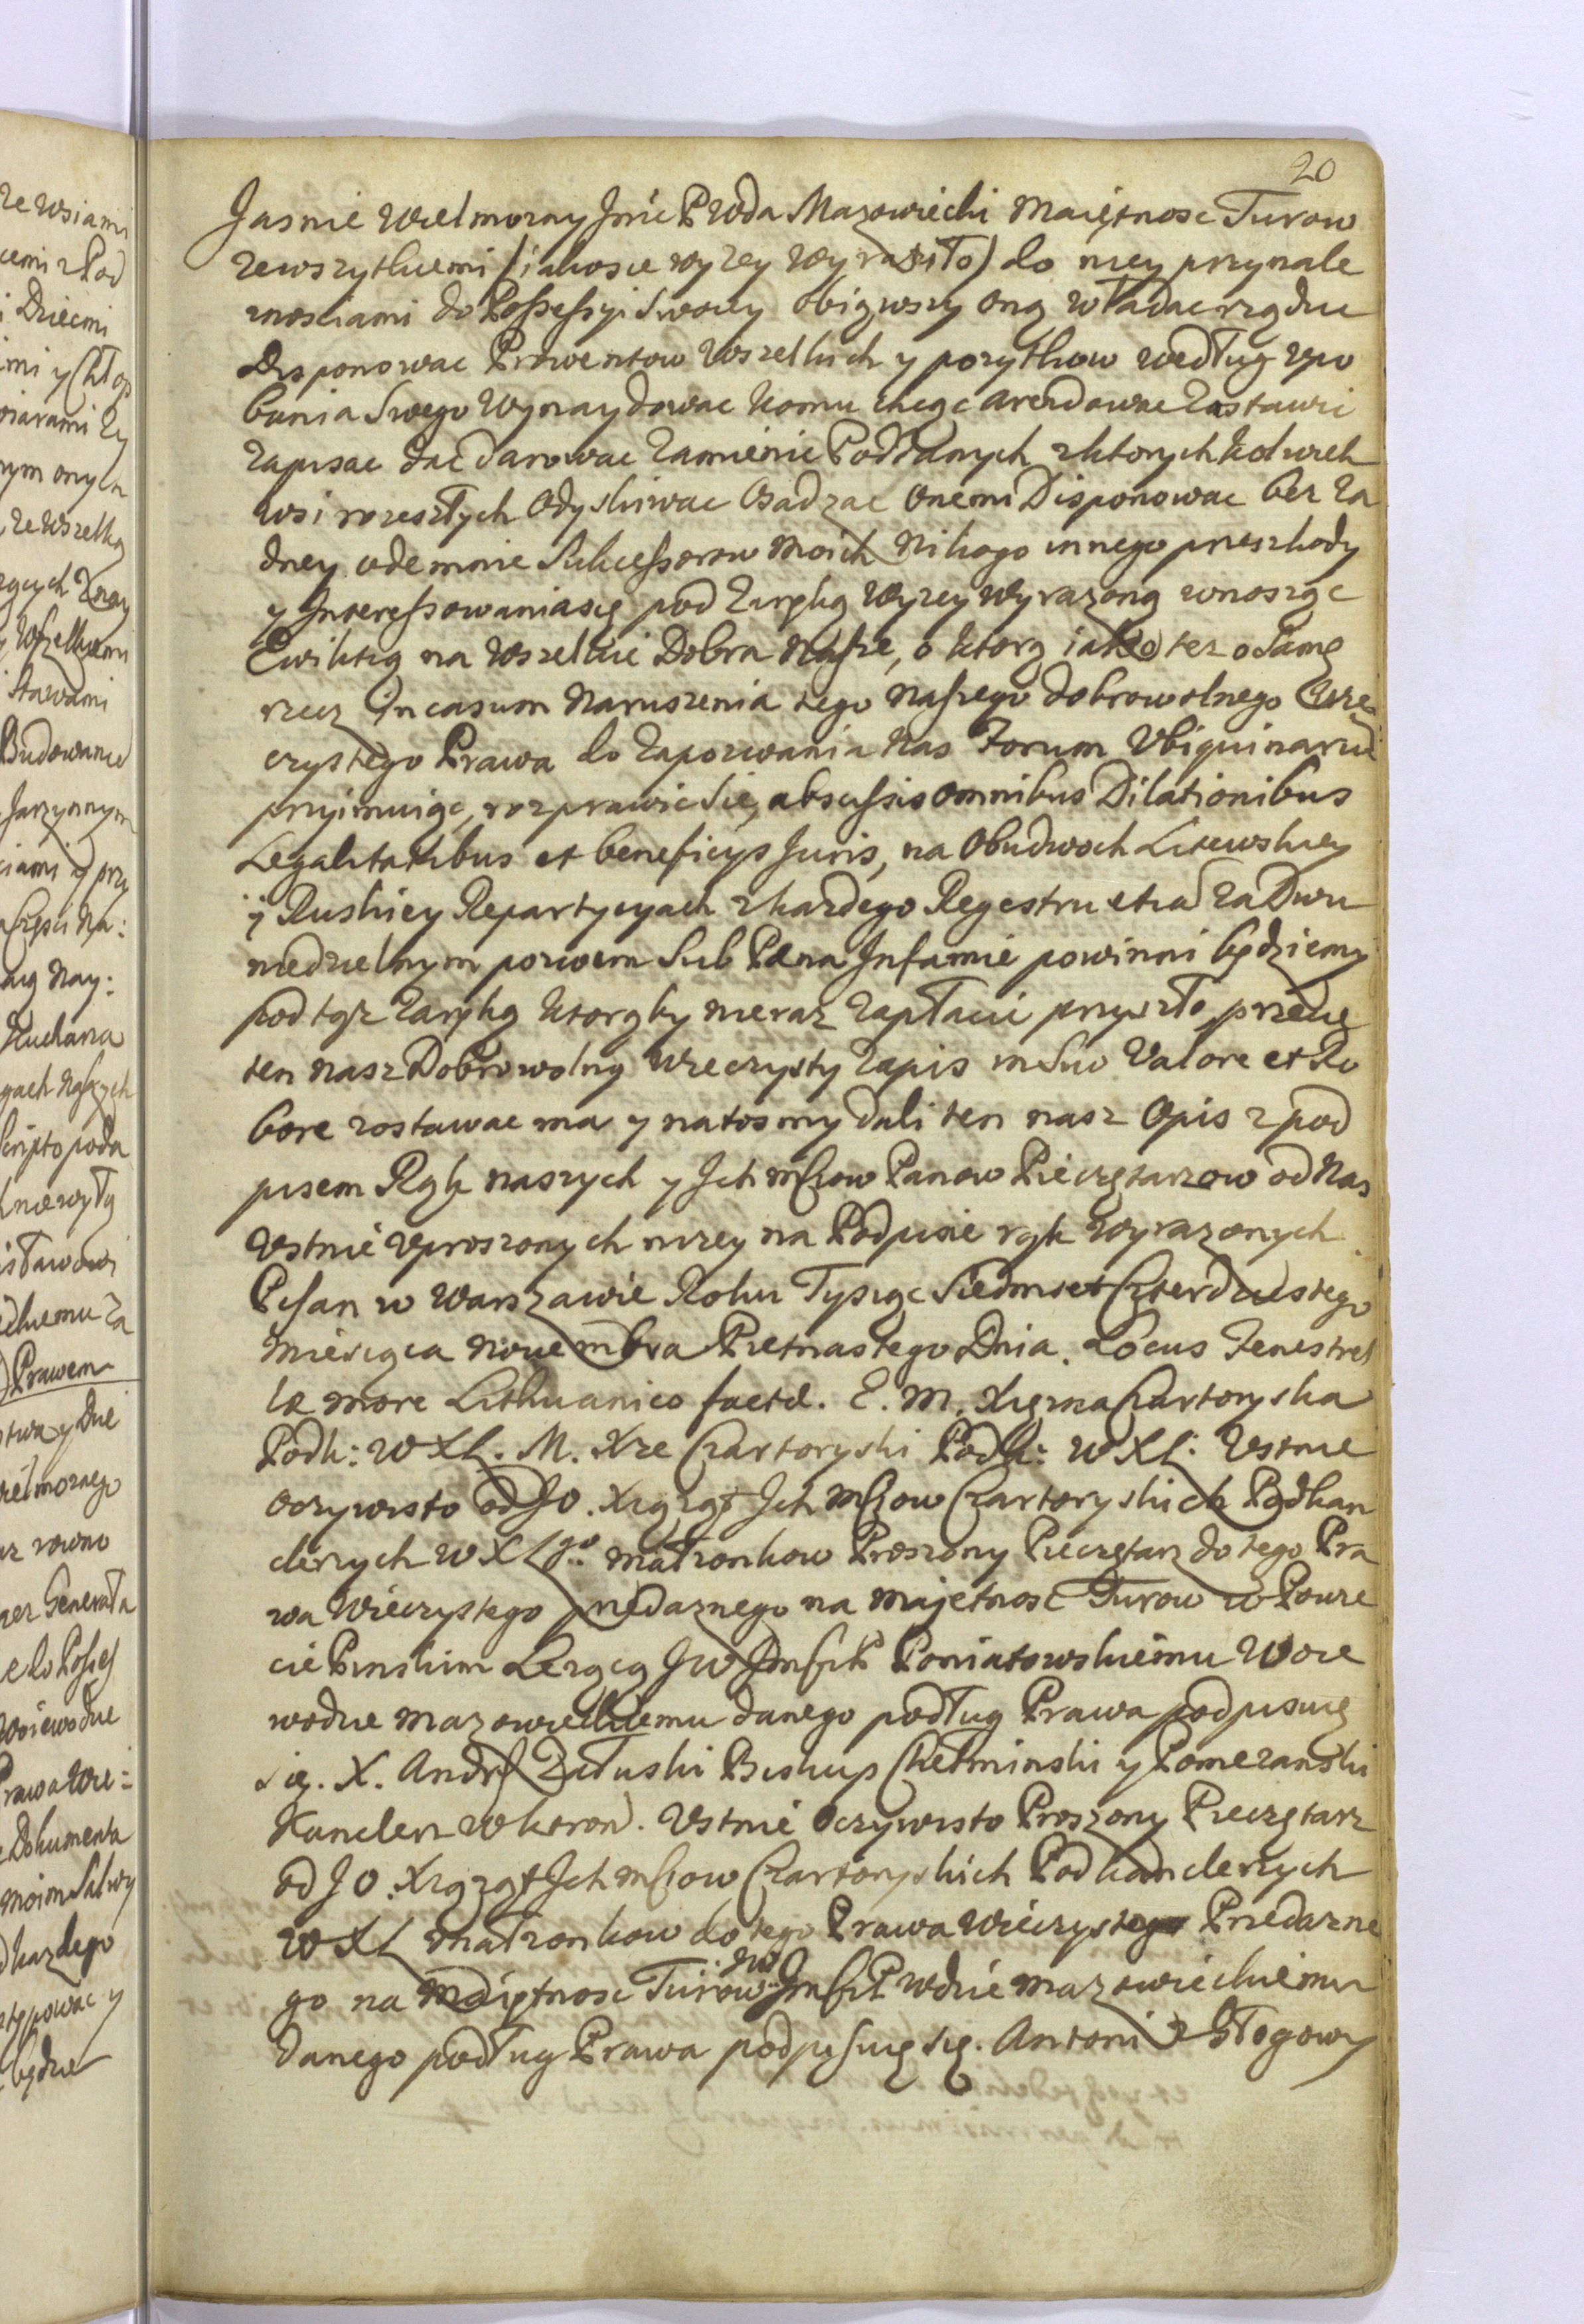 20
Jasnie Wielmozny Jmć P Wda Mazowiecki Maiętnosc Turow
zewszytkiemi (iakosie wyzey wyraziło) do niey przynale
znosciami do Possessyi Swoiey obiąwszy oną władac rządzic
Disponowac Prowentow wszelkich y pozytkow według upo
bania Swego wynaydowac komu chcąc arendowac Zastawic
zapisac dac darowac Zamienic Poddanych zktorychkolwiek
wsi rozeszłych odyskiwac osadzac onemi Disponowac bez za
dney odemnie Sukcessorow moich Nikogo innego przeszkody
y Interessowaniasię pod Zaręką wyzey wyrazoną wnosząc
Ewikcią na wszelkie Dobra Nasze, o ktorą iako tez o Samę
rzecz In casum Naruszenia tego Naszego dobrowolnego Wie
czystego Prawa do Zapozwania Nas Forum Ubiquinarie
przyimuiąc, rozprawic Się, abscissis omnibus Dilationibus
Legalitatibus et beneficijs Juris, na Obudwoch Litewskiey
y Ruskiey Repartycyach zkazdego Regestru etiad za Dwu
niedzielnym pozwem Sub Pæna Infamie powinni będziemy
pod tąz Zaręką ktorąby nieraz zapłacic przyszło, przecię
ten nasz Dobrowolny Wieczysty Zapis in Suo Valore et Ro
bore zostawac ma y natosmy dali ten nasz Opis z pod
pisem Rąk naszych y Ich mściow Panow Pieczętarzow od Nas
Ustnie uproszonych nizey na Podpisie rąk wyrazonych
Pisan w Warszawie Roku Tysiąc Siedmset Czterdziestego
Miesiąca Novembra Pietnastego Dnia. Locus Fenestrel
læ more Lithuanico factæ. E. M. Xięzna Czartoryska
Podk: W X L. M. Xze Czartoryski Podk: W X L: Ustnie
oczywisto od JO. Xiążąt Ich Mściow Czartoryskich Podkan
clerzych W X Lgo. małzonkow Proszony Pieczętarz do tego Pra
wa Wieczystego przedaznego na Majętnosc Turow w Powie
cie Pinskim Lezącą JW Jmsci P Poniatowskiemu Woie
wodzie Mazowieckiemu danego podług Prawa podpisuię
się. X. Andrz Załuski Biskup Chełminski y Pomezanski
Kanclerz W koron. Ustnie Oczywisto Proszony Pieczętarz
od JO. Xiążąt Ich mściow Czartoryskich Podkanclerzych
W X L małzonkow do tego Prawa Wieczystego Przedazne
JW
go na Maiętnosc Turow Jmsci P Wdzie Mazowieckiemu
danego podług Prawa podpisuię się. Antoni z Głogowy